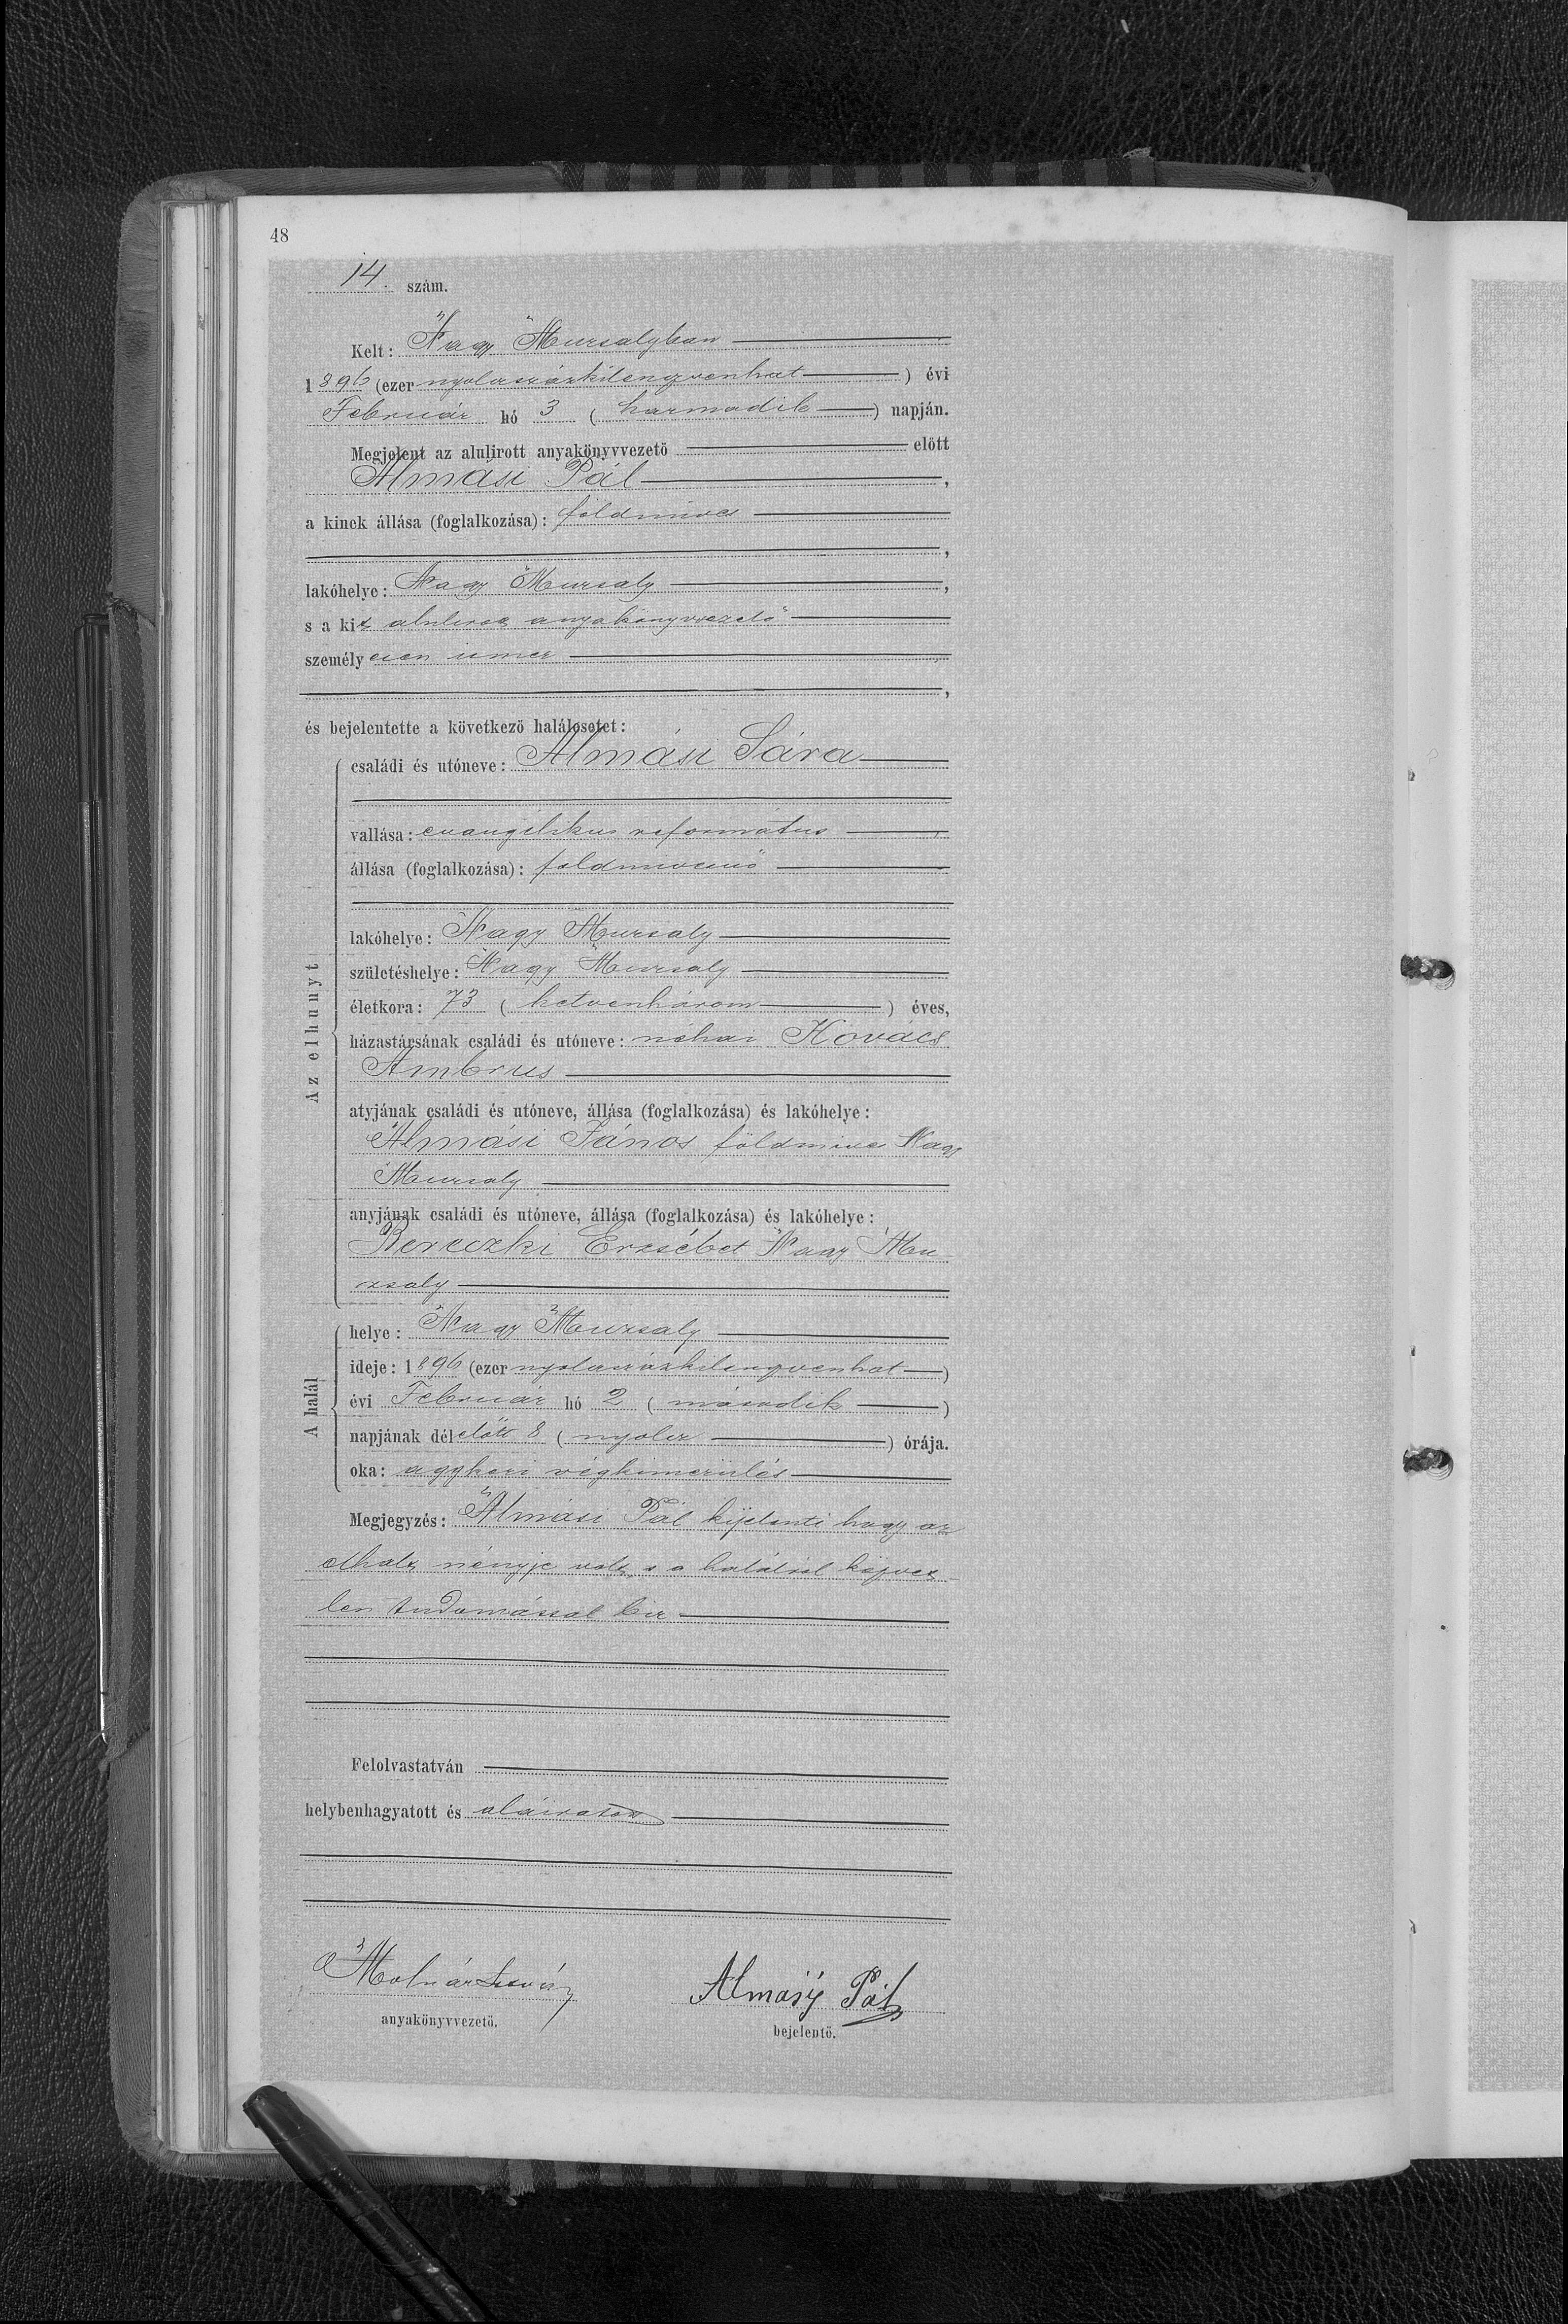 48
14. szám.
Kelt: Nagy Muzsalyban
1896 (ezer nyolczszázkilenczvenhat) évi
Február hó 3 (harmadik) napján.
Megjelent az alulirott anyakönyvvezető előtt
Almási Pál,
a kinek állása (foglalkozása): földmives
,
lakóhelye: Nagy Muzsaly,
s a kit alulirot anyakönyvvezető
személyesen ismer
,
és bejelentette a következő halálesetet:
Az elhunyt
családi és utóneve: Almási Sára
vallása: evangélikus református
állása (foglalkozása): földmivesnő
lakóhelye: Nagy Muzsaly
születéshelye: Nagy Muzsaly
életkora: 73 (hetvenhárom) éves,
házastársának családi és utóneve: néhai Kovács
Ambrus
atyjának családi és utóneve, állása (foglalkozása) és lakóhelye:
Almási János földmives Nagy
Muzsaly
anyjának családi és utóneve, állása (foglalkozása) és lakóhelye:
Bereczki Erzsébet Nagy Mu-
zsaly
A halál
helye: Nagy Muzsaly
ideje: 1896 (ezer nyolczszázkilenczvenhat)
évi Február hó 2 (második)
napjának délelőtt 8 (nyolcz) órája.
oka: aggkori végkimerülés
Megjegyzés: Almási Pál kijelenti hogy az
elhalt nényje volt, s a halálról közvet-
len tudomással bir
Felolvastatván
helybenhagyatott és aláiratott
Molnár István
anyakönyvvezető.
Almásÿ Pál
bejelentő.